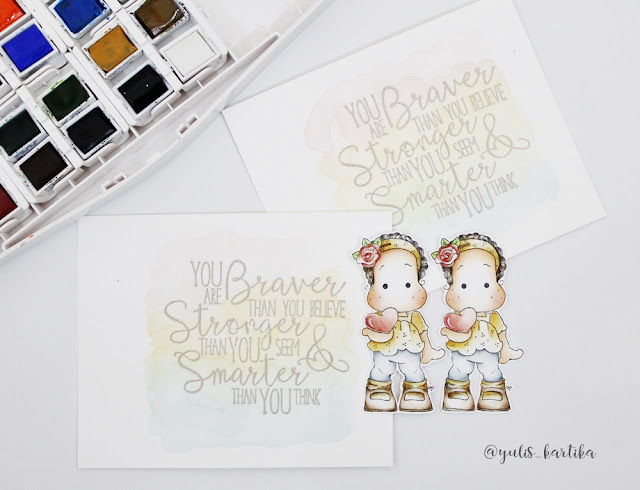 YOU
ARE Braver
THAN YOU BELIEVE
Stronger
THAN YOU SEEM &
Smarter
THAN YOU THINK
YOU
ARE Braver
THAN YOU BELIEVE
Stronger
THAN YOU SEEM &
Smarter
THAN YOU THINK
@yulis_kartika